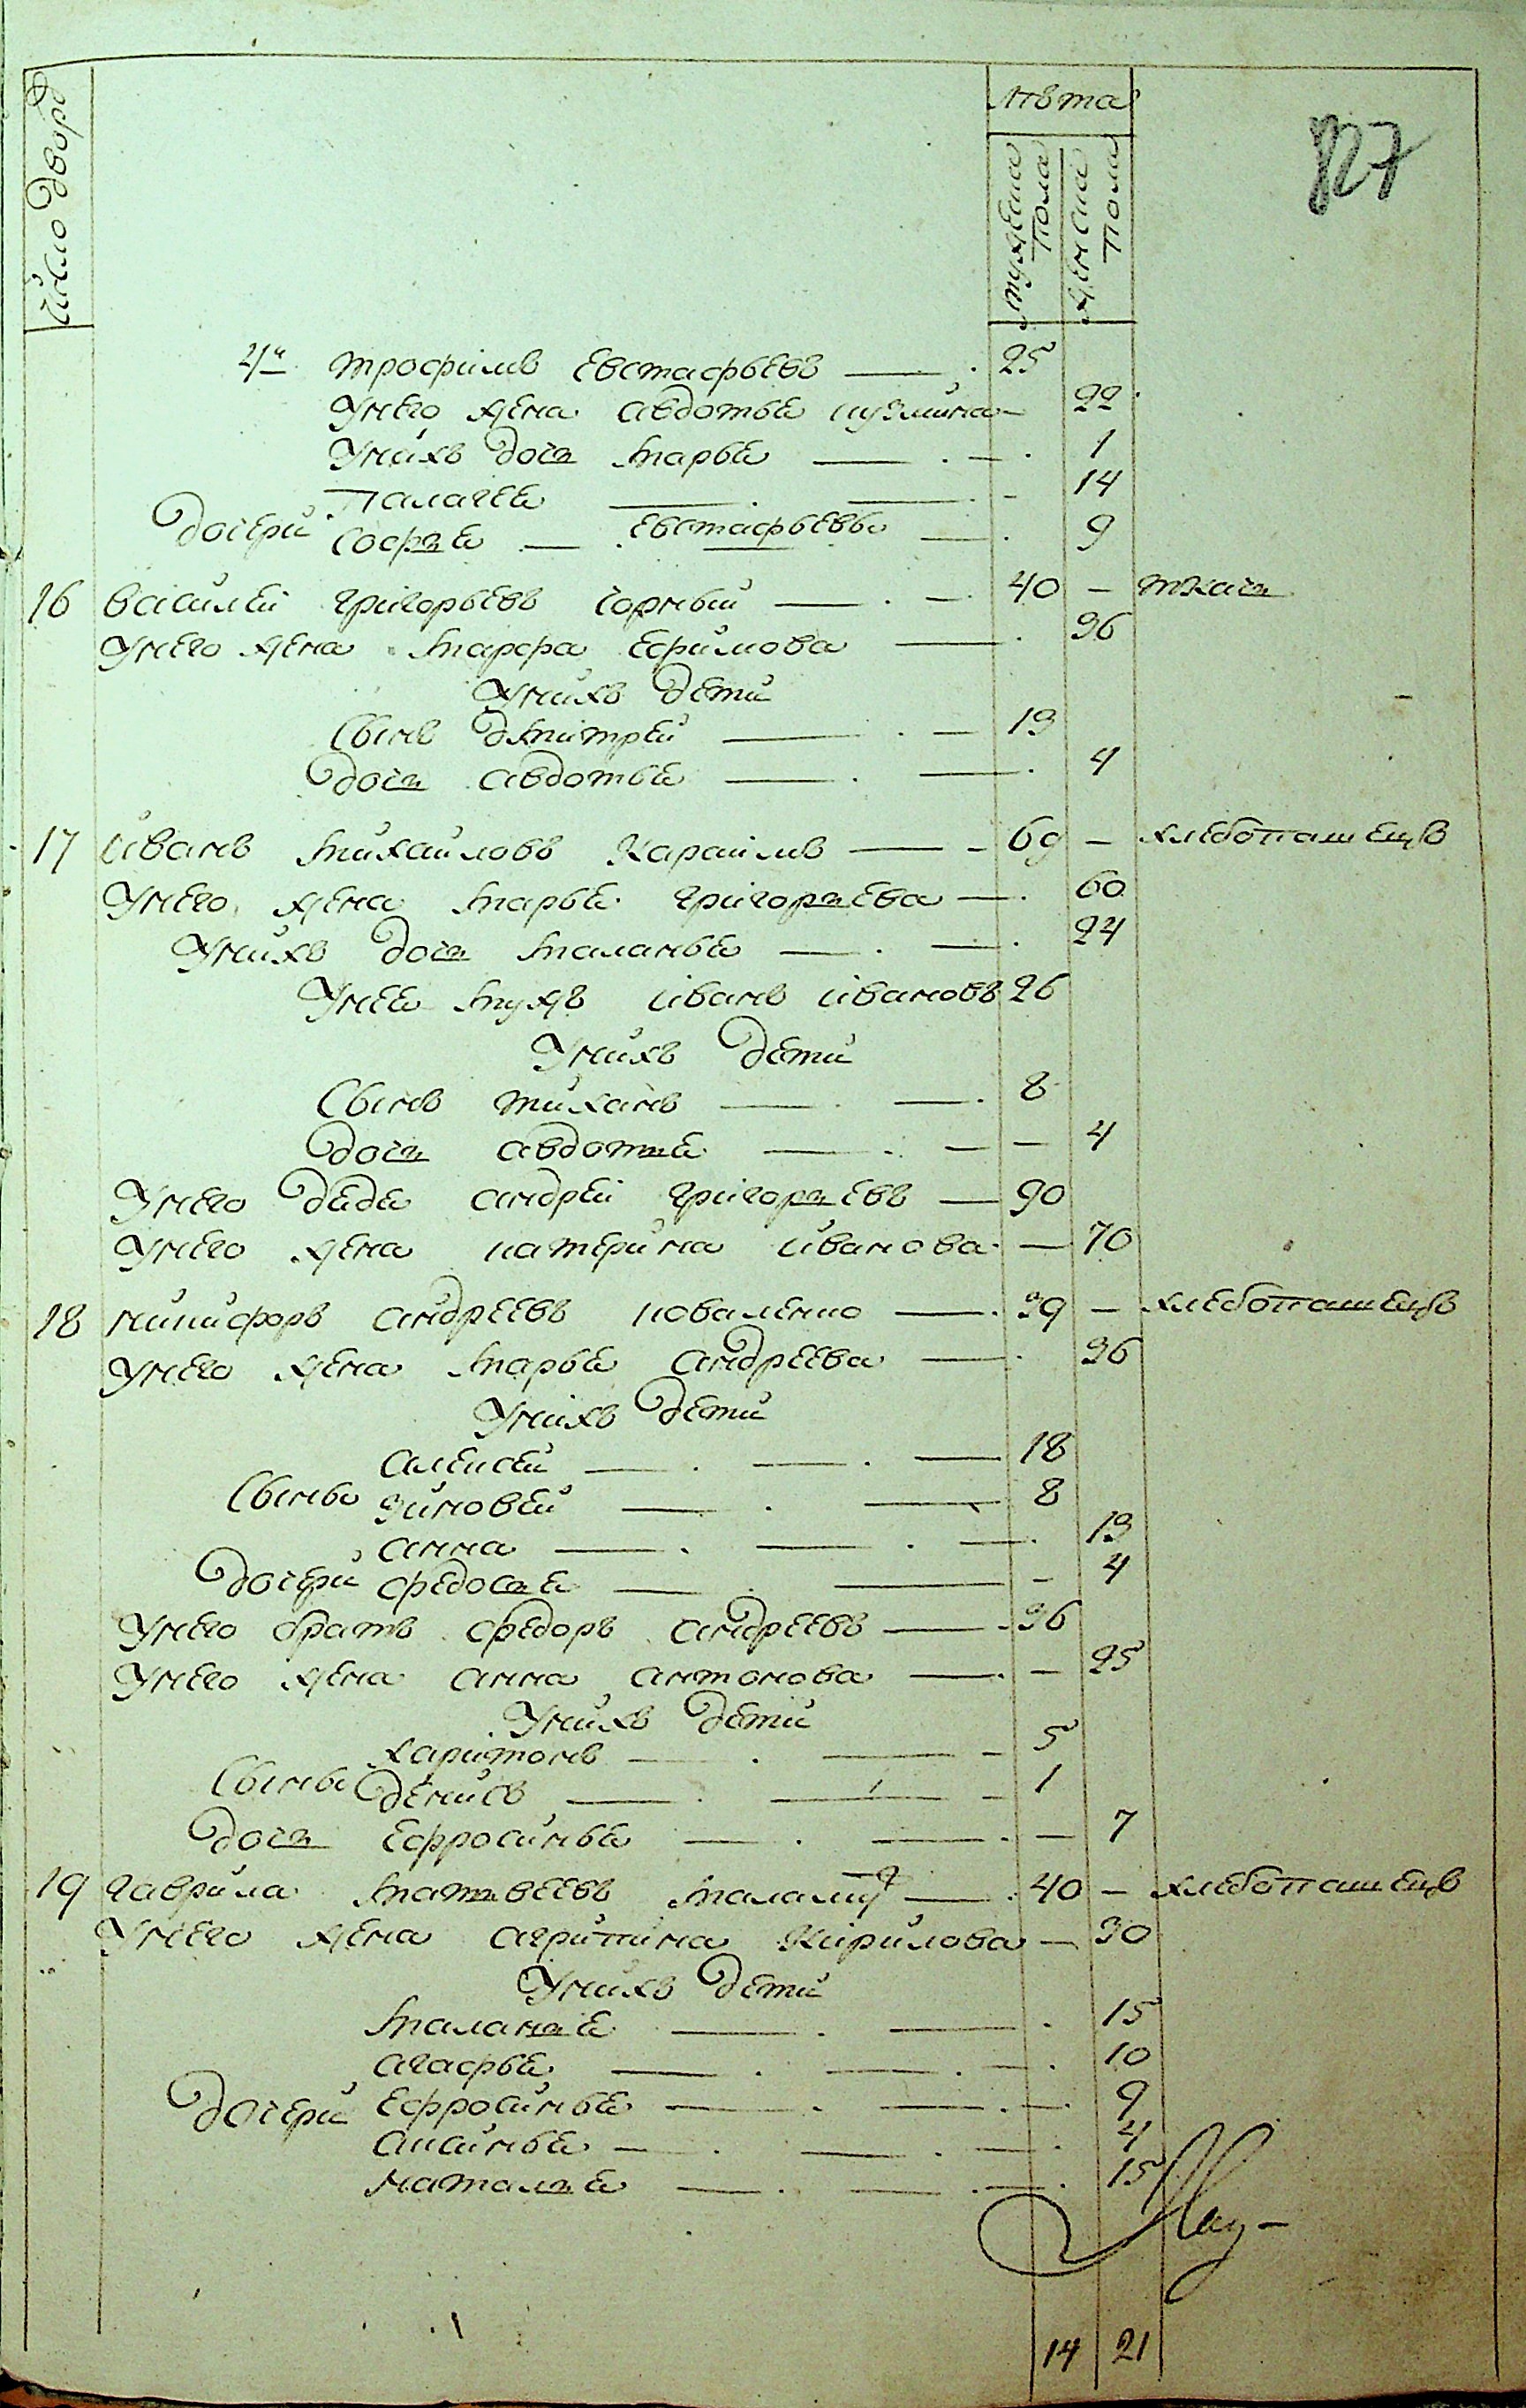 число дворъ
лѣта
мужеска пола
женска пола
127
4й трофимъ Евстафьевъ 25
Унего жена авдотья кузмина 22
Унихъ дочь марья 1
Палагея 14
дочери софья Евстафьевы 9
16 василей григорьевъ чорный 40 ткачь
Унего жена марфа Ефимова 36
Унихъ дети
Сынъ дмитрей 13
дочь авдотья 4
17 иванъ михайловъ Караимъ 69 хлебопашецъ
Унего жена марья григорьева 60
Унихъ дочь маланья 24
Унее мужъ иванъ ивановъ 26
Унихъ дети
Сынъ тиханъ 8
дочь авдотья 4
Унего дядя андрей григорьевъ 90
Унего жена катерина иванова 70
18 никифоръ андреевъ коваленко 39 хлебопашецъ
Унего жена марья андреева 36
Унихъ дети
алексей 18
Сыны зиновей 8
анна 13
дочери федосья 4
Унего братъ федоръ андреевъ 36
Унего жена анна антонова 25
Унихъ дети
харитонъ 5
Сыны денисъ 1
дочь Ефросинья 7
19 гаврила матвеевъ 40 хлебопашецъ
Унего жена агрипина Кирилова 30
Унихъ дети
маланья 15
агафья 10
дочери Ефросинья 9
аксинья 4
наталья 15
14 21